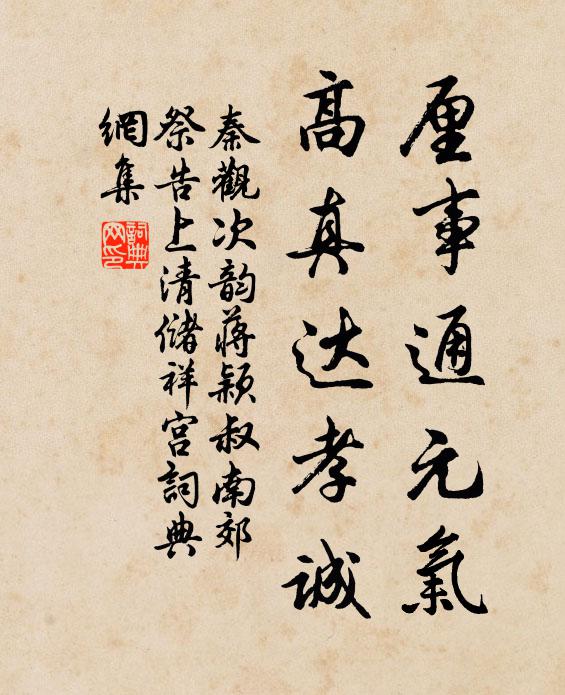 厘事通元氣
高真达孝誠
秦觀次韵蔣颖叔南郊
祭告上清儲祥宫詞典
網集
詞典
网印